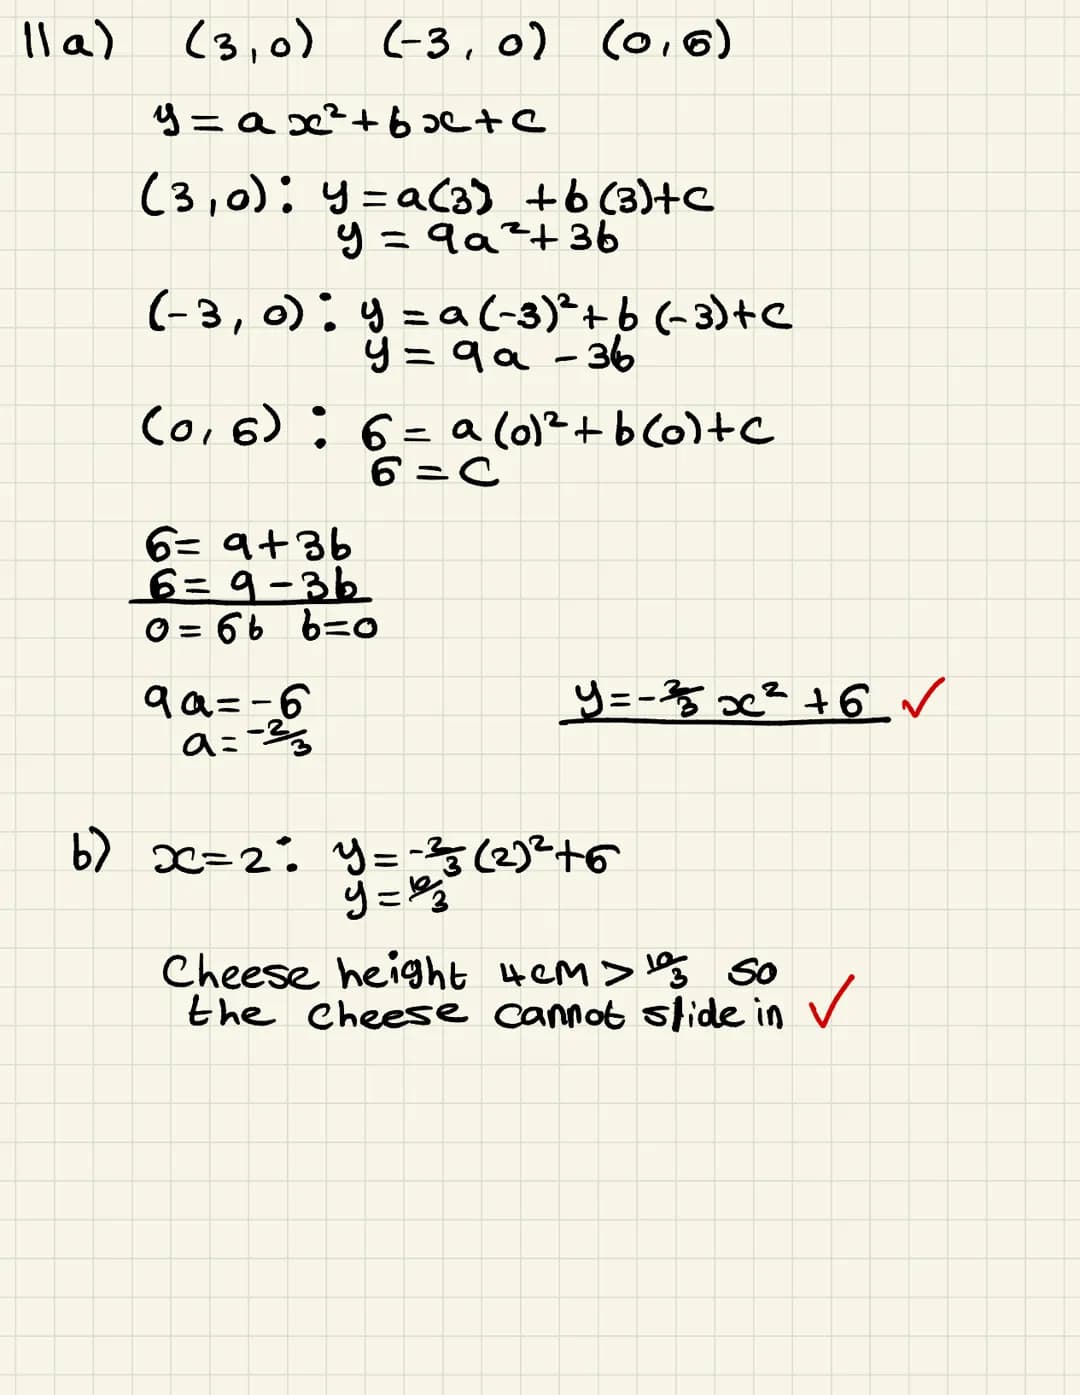 11a) (3,0) (-3, 0) (0,6)
y = ax²+bx+c
(3,0): y=a(3) +b(3)+c
y = 9a²+3b
(-3, 0): y = a(-3)²+b(-3)+c
y = 9a -3b
(0,6): 6= a(0)²+b(0)+c
6=c
6= 9+3b
6= 9-3b
0=6b b=0
9a=-6
a=-2/3
y=-2/3 x² +6 ✓
b) x=2: y=-2/3(2)²+6
y=10/3
Cheese height 4cm > 10/3 so
the cheese cannot slide in ✓